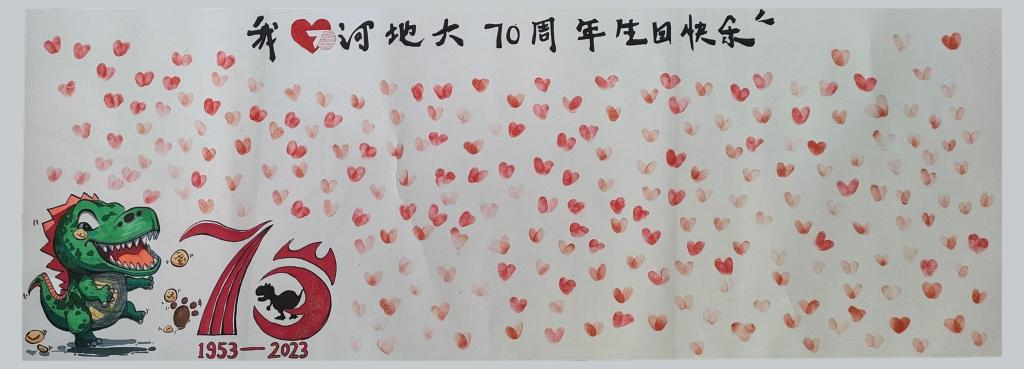 我 河地大 70周年生日快乐
70
1953—2023